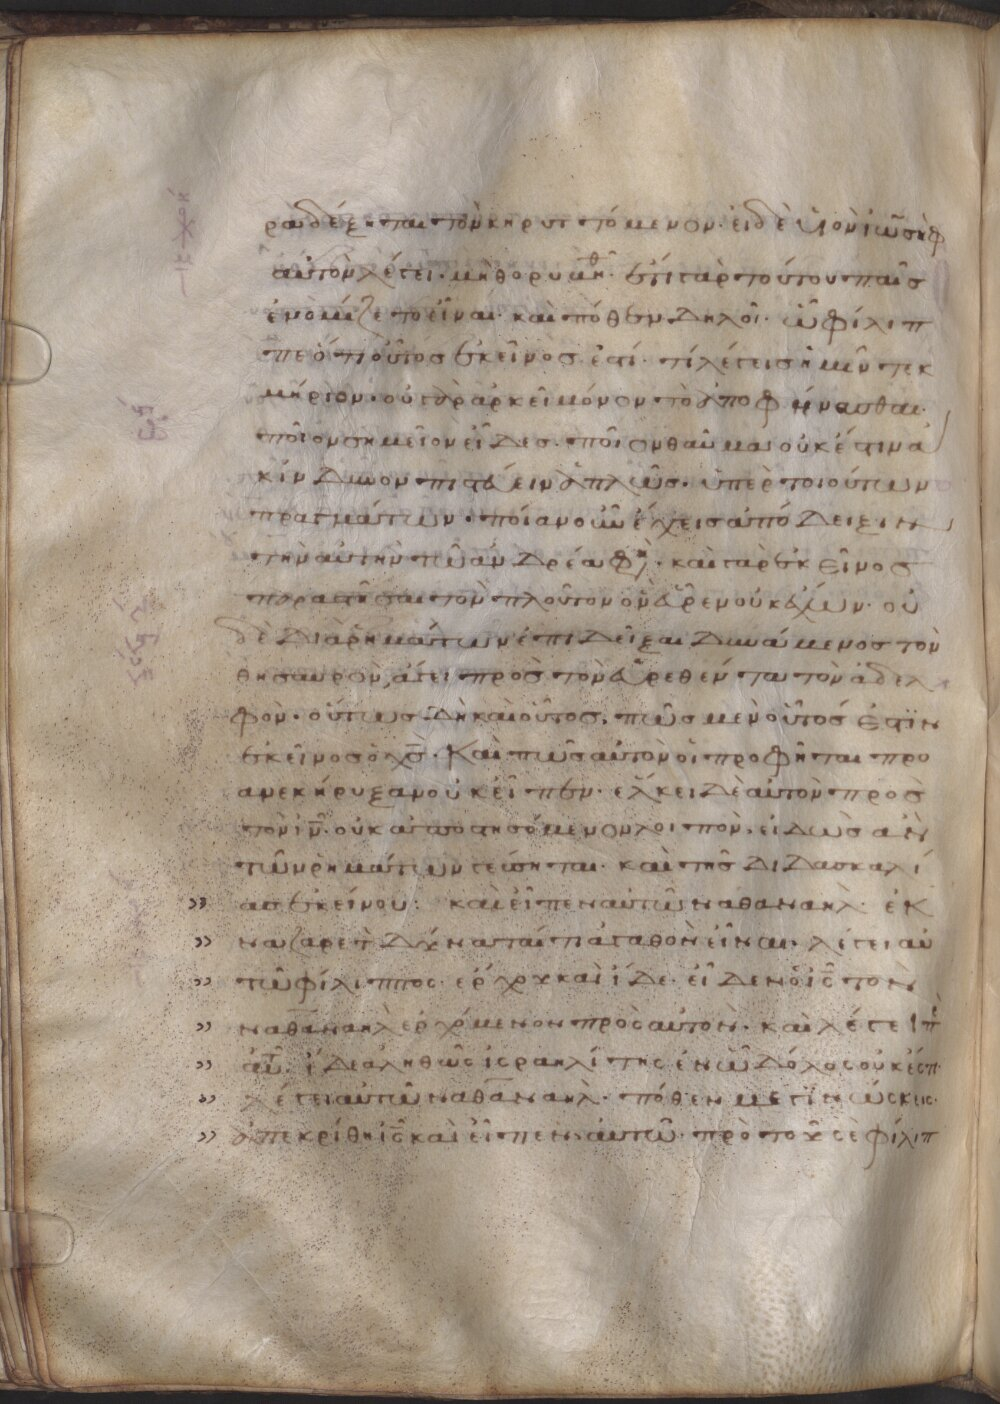 ραδέξηται τὸν κηρυττόμενον. εἰ δὲ υἱὸν ἰωσὴφ
αὐτὸν λέγει. μὴ θορυβηθῆς. ἔτι γὰρ τούτου παῖς
ἐνομίζετο εἶναι. καὶ πόθεν δῆλον. ὦ φίλιπ
πε ὅτι οὗτος ἐκεῖνος ἐστί. τί λέγεις ἡμῖν τεκ
μήριον. οὐ γὰρ ἀρκεῖ μόνον τὸ ἀποφήνασθαι.
ποῖον σημεῖον εἶδες. ποῖον θαῦμα οὐκ ἔστιν ἀ
κίνδυνον πιστεύειν ἁπλῶς. ὑπὲρ τοιούτων
πραγμάτων. ποίαν οὖν ἔχεις ἀπόδειξιν
τὴν αὐτὴν τῶ ἀνδρέα φησί. καὶ γὰρ ἐκεῖνος
παραστῆσαι τὸν πλοῦτον ὃν εὗρεν οὐκ ἔχων. οὐ
δὲ διὰ ῥημάτων ἐπιδεῖξαι δυνάμενος τὸν
θησαυρὸν, ἄγει πρὸς τὸν εὑρεθέντα τὸν ἀδελ
φὸν. οὕτως δὴ καὶ οὗτος. πῶς μὲν οὗτός ἐστϊν
ἐκεῖνος ὁ χς. καὶ πῶς αὐτὸν οἱ προφῆται προ
ανεκήρυξαν οὐκ εἶπεν. ἕλκει δὲ αὐτὸν πρὸς
τὸν ιν. οὐκ ἀποστησόμενον λοιπὸν. εἰδὼς ἂν
τῶν ῥημάτων γεύσηται. καὶ τῆς διδασκαλί
ας ἐκείνου: καὶ εἶπεν αὐτῶ ναθαναήλ. ἐκ
ναζαρὲτ δύναταί τι ἀγαθὸν εἶναι. λέγει αὐ
τῶ φίλιππος. ἔρχου καὶ ἴδε. εἶδεν ὁ ις τὸν
ναθαναὴλ ἐρχόμενον πρὸς αὐτὸν. καὶ λέγει π
αυ. ἴδε ἀληθῶς ἰσραηλίτης ἐν ὧ δόλος οὐκ ἔστι.
λέγει αὐτῶ ναθαναὴλ. πόθεν με γϊνώσκεις.
ἀπεκρίθη ις καὶ εἶπεν αὐτῶ. πρὸ τοῦ σε φίλιπ